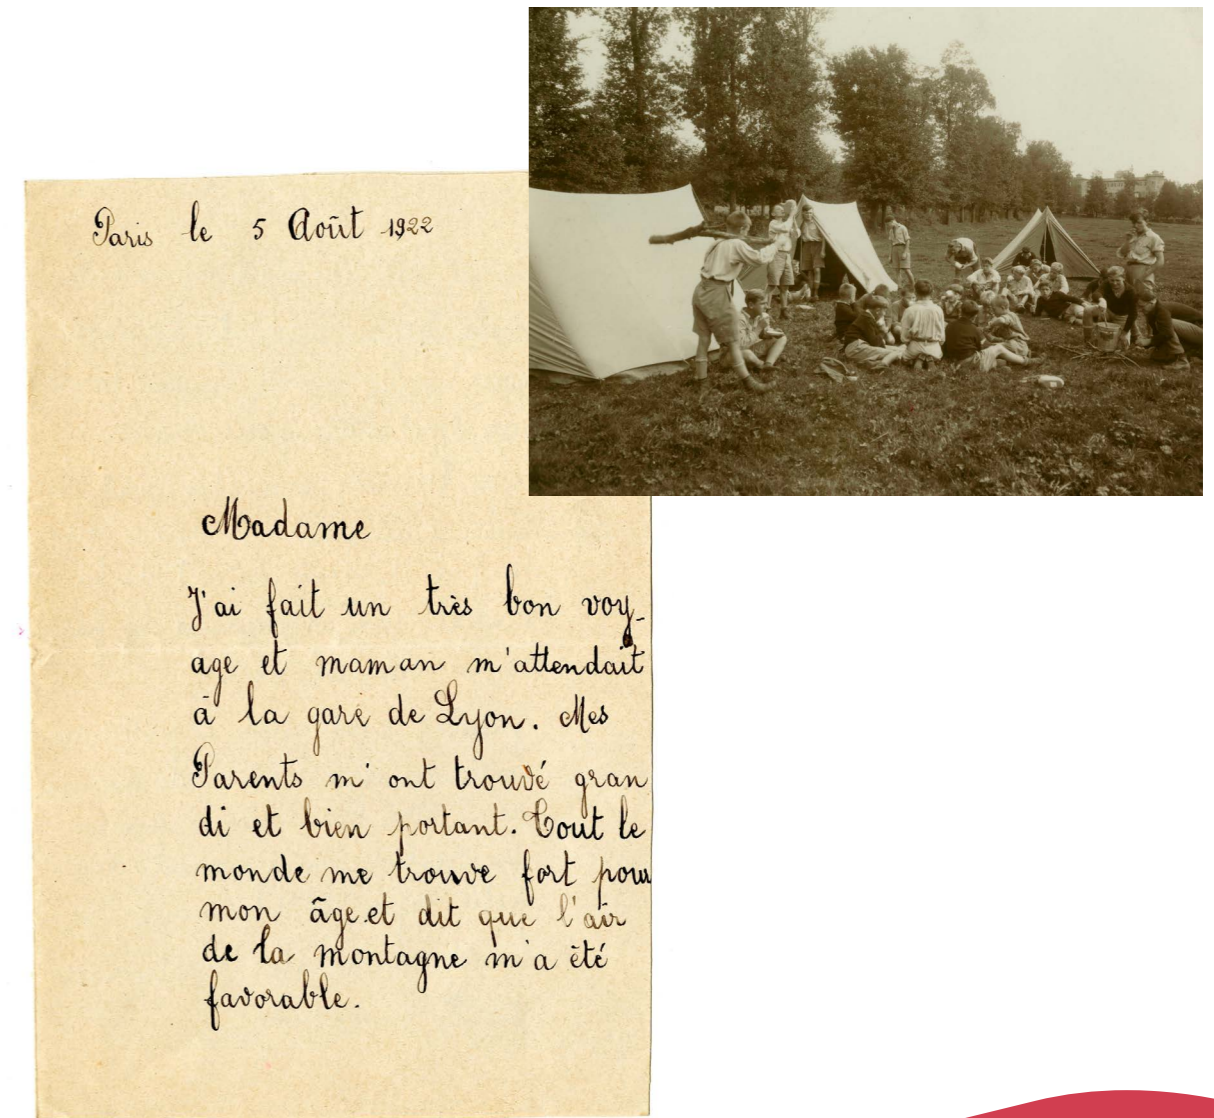 Paris le 5 Août 1922
Madame
J'ai fait un très bon voy-
age et maman m'attendait
à la gare de Lyon. Mes
Parents m'ont trouvé gran
di et bien portant. Tout le
monde me trouve fort pour
mon âge et dit que l'air
de la montagne m'a été
favorable.